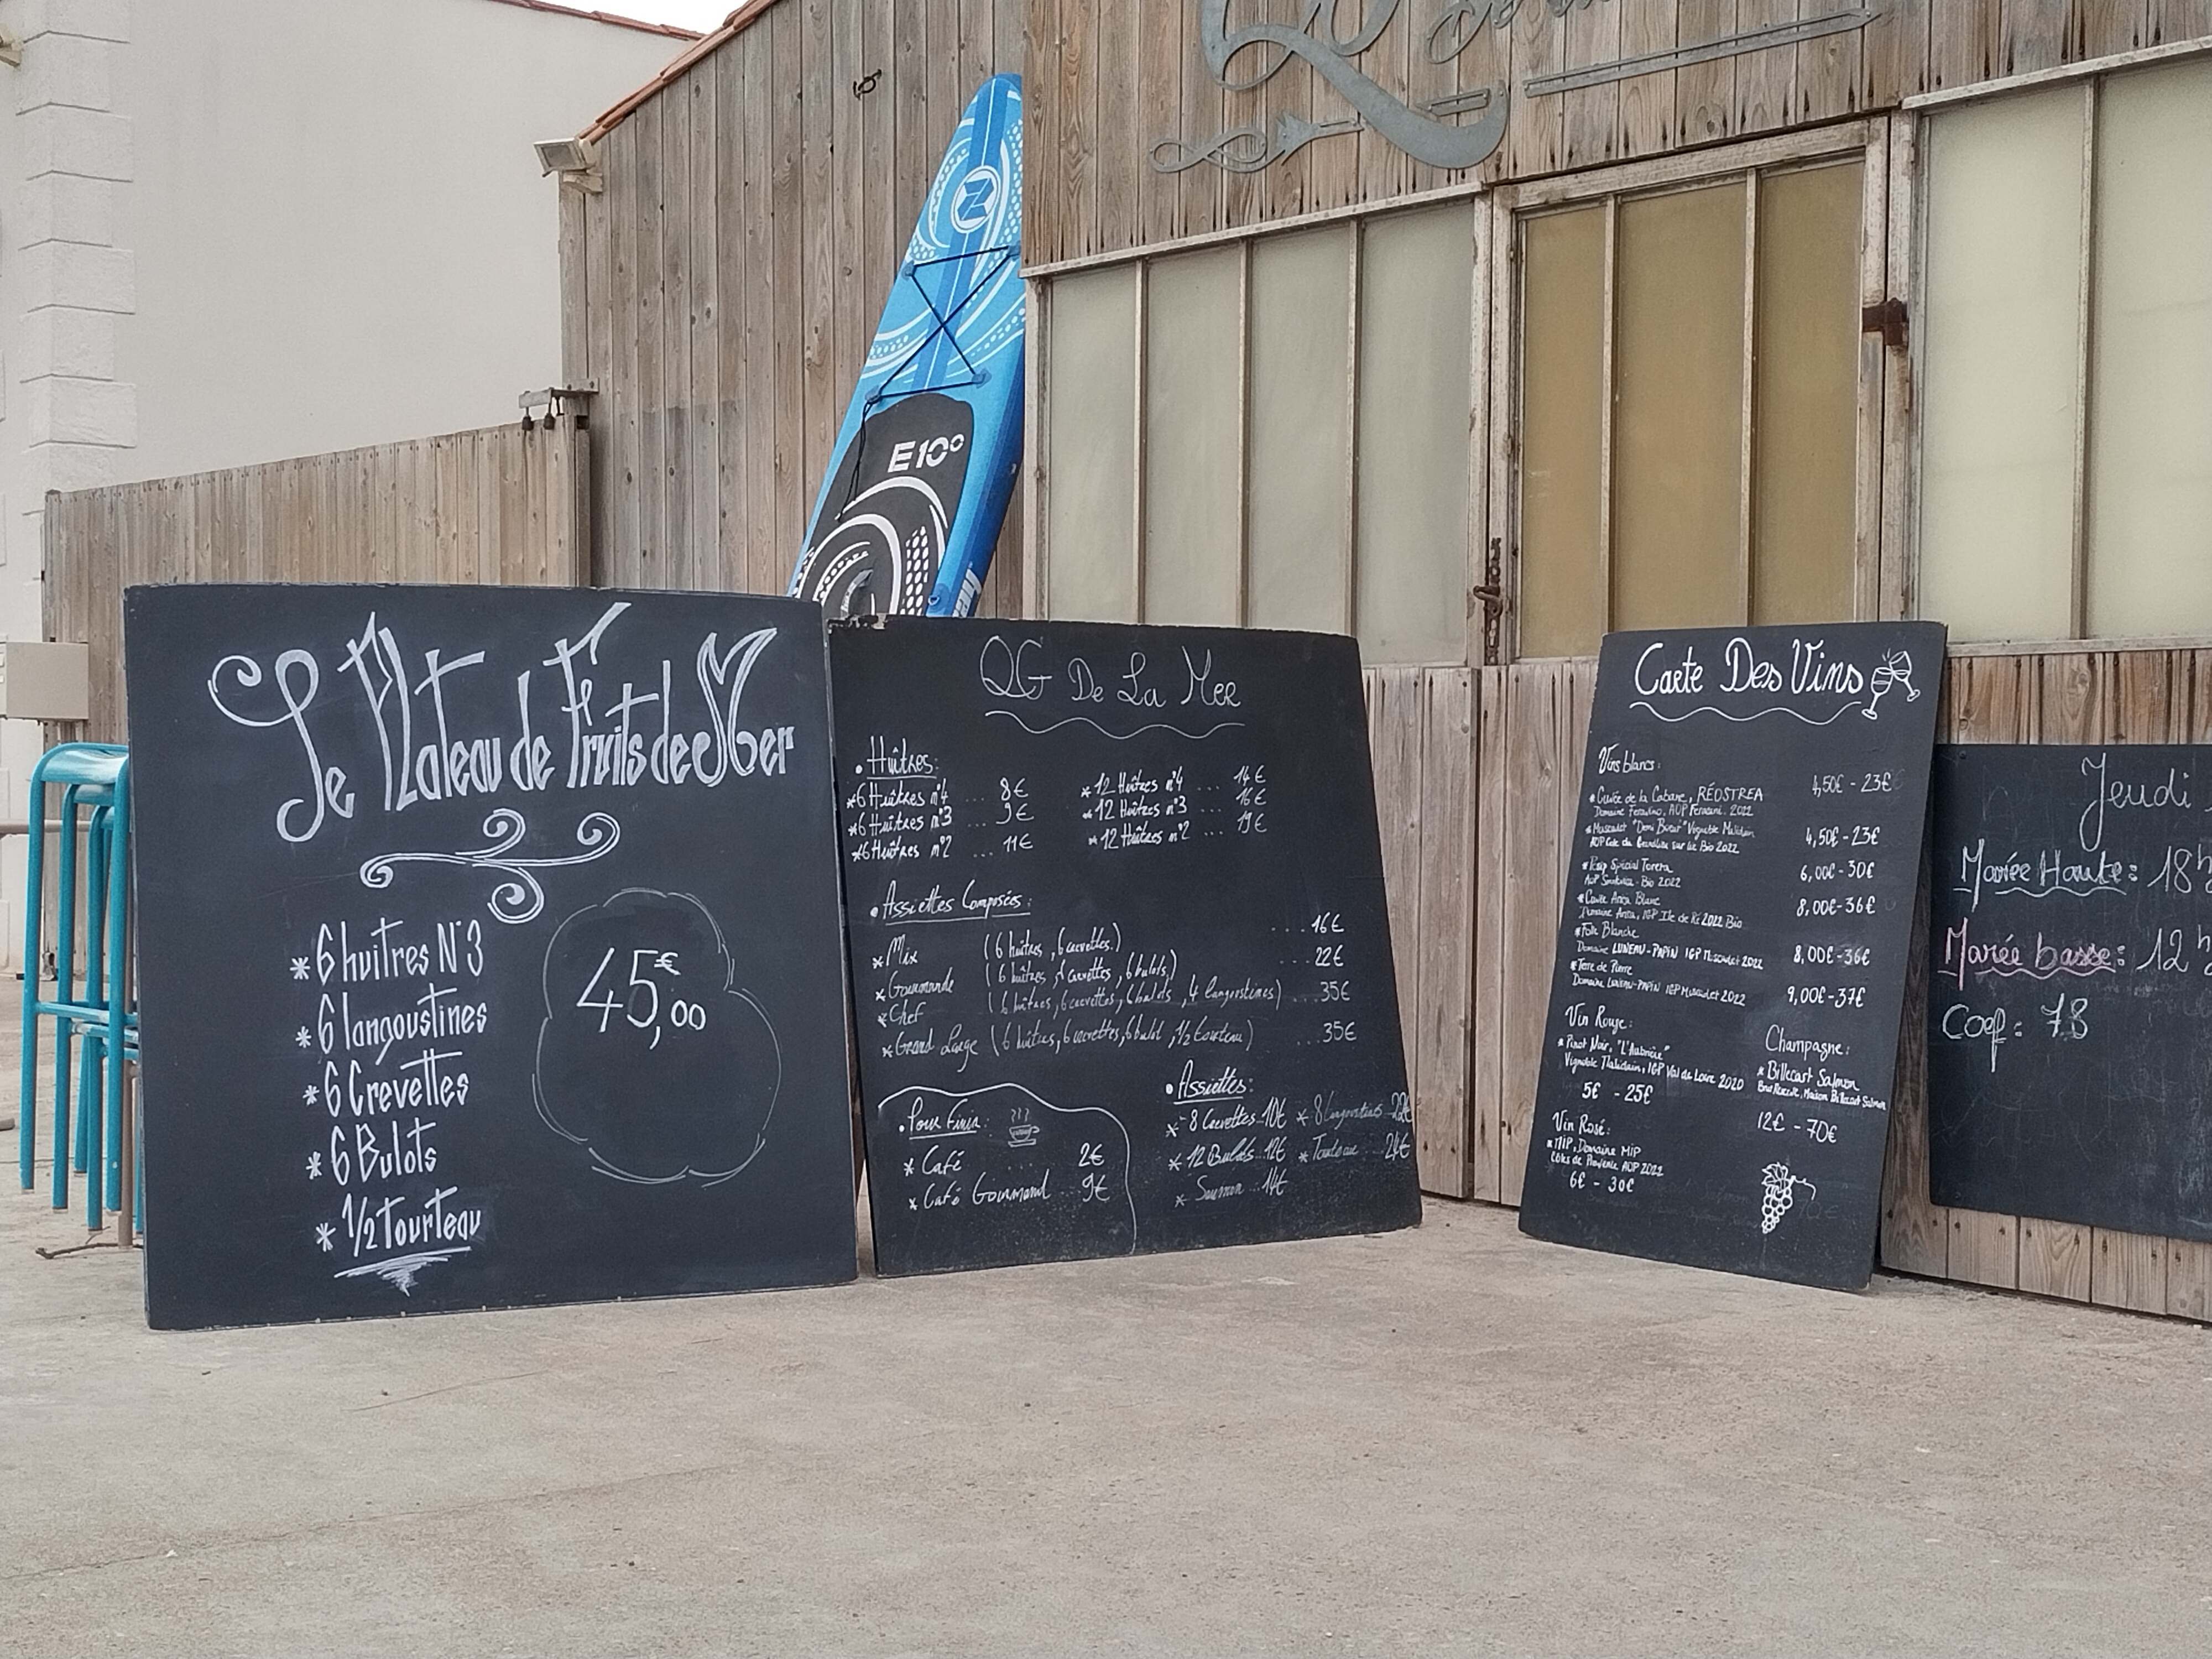 E10°
Le Plateau de Fruits de Mer
* 6 huitres N°3
* 6 langoustines
* 6 Crevettes
* 6 Bulots
* 1/2 Tourteau
45,00€
QG De La Mer
• Huîtres:
* 6 Huîtres n°4 ... 8€
* 6 Huîtres n°3 ... 9€
* 6 Huîtres n°2 ... 11€
* 12 Huîtres n°4 ... 14€
* 12 Huîtres n°3 ... 16€
* 12 Huîtres n°2 ... 19€
• Assiettes Composées:
* Mix (6 huîtres, 6 crevettes.) .... 16€
* Gourmande (6 huîtres, crevettes, 6 bulots,) ... 22€
* Chef (6 huîtres, 6 crevettes, 6 bulots, 4 langoustines) ... 35€
* Grand Large (6 huîtres, 6 crevettes, 6 bulot, 1/2 tourteau) ... 35€
• Pour Finir:
* Café .... 2€
* Café Gourmand 9€
• Assiettes:
* 8 Crevettes 10€
* 12 Bulots 12€
* Saumon 14€
* 8 Langoustines
* Tourteau 24€
Carte Des Vins
Vins blancs:
* Cuvée de la Cabane, RÉOSTREA 4,50€ - 23€
2022
* Muscadet Vignoble 4,50€ - 23€
sur lie Bio 2022
Spécial 6,00€ - 30€
AOP Bio 2022
* Cuvée Blanc 8,00€ - 36€
Domaine IGP Ile de Ré 2022 Bio
* Folle Blanche
Domaine LUNEAU-PAPIN IGP 2022 8,00€ - 36€
* Terre de Pierre
Domaine LUNEAU-PAPIN IGP Muscadet 2022 9,00€ - 37€
Vin Rouge:
* Pinot Noir,
Vignoble IGP Val de Loire 2020
5€ - 25€
Vin Rosé:
* MiP, Domaine MiP
Côtes de Provence AOP 2022
6€ - 30€
Champagne:
* Billecart Salmon
Brut Réserve, Maison Billecart Salmon
12€ - 70€
Jeudi
Marée Haute: 18h
Marée basse: 12h
Coef: 78